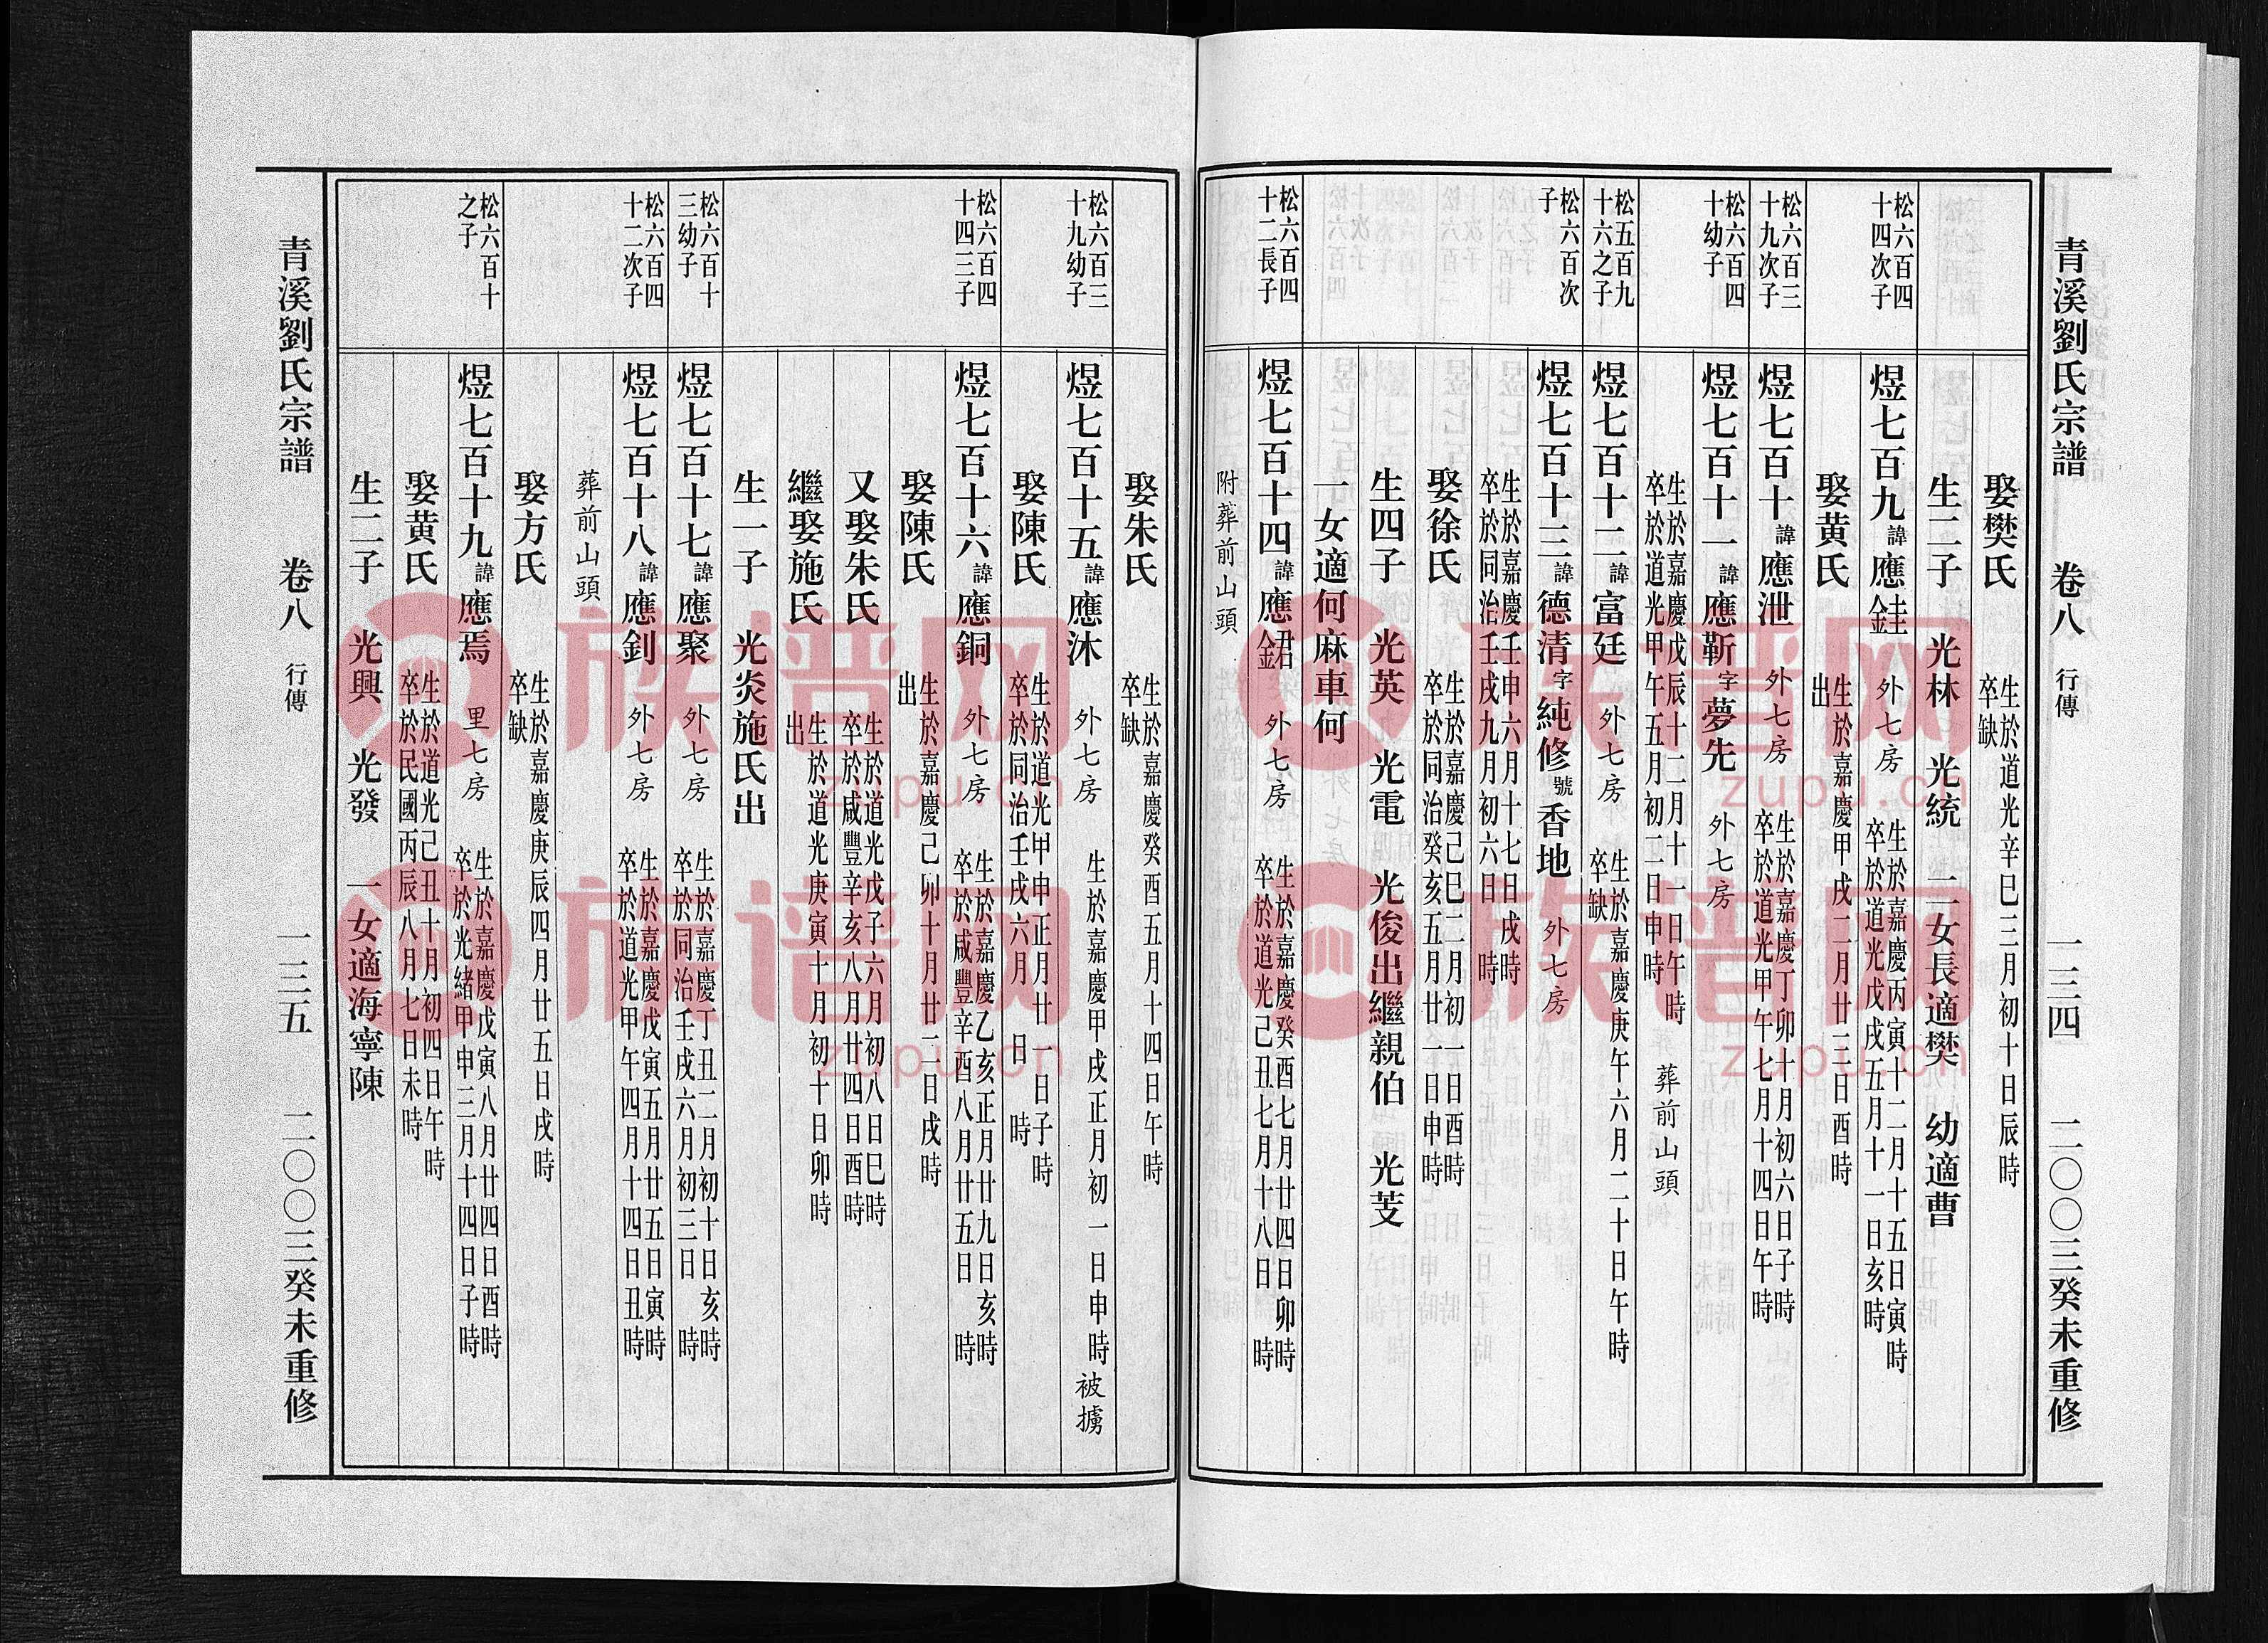 青溪劉氏宗譜 卷八 行傳 一三四 二〇〇三癸未重修
娶樊氏 生於道光辛巳三月初十日辰時 卒缺
生二子 光林 光統 二女長適樊 幼適曹
松六百四十四次子 煜七百九 諱應 外七房 生於嘉慶丙寅十二月十五日寅時 卒於道光戊戌五月十一日亥時
娶黄氏 生於嘉慶甲戌二月廿三日酉時 出
松六百三十九次子 煜七百十 諱應泄 外七房 生於嘉慶丁卯十月初六日子時 卒於道光甲午七月十四日午時
松六百四十幼子 煜七百十一 諱應靳 字夢先 外七房
生於嘉慶戊辰十二月十一日午時 卒於道光甲午五月初二日申時 葬前山頭
松五百九十六之子 煜七百十二 諱富廷 外七房 生於嘉慶庚午六月二十日午時 卒缺
松六百次子 煜七百十三 諱德清 字純修 號香地 外七房
生於嘉慶壬申六月十七日戌時 卒於同治壬戌九月初六日 時
娶徐氏 生於嘉慶己巳二月初一日酉時 卒於同治癸亥五月廿一日申時
生四子 光英 光電 光俊出繼親伯 光芰
一女適何麻車何
松六百四十二長子 煜七百十四 諱應 外七房 生於嘉慶癸酉七月廿四日卯時 卒於道光己丑七月十八日 時
附葬前山頭
娶朱氏 生於嘉慶癸酉五月十四日午時 卒缺
松六百三十九幼子 煜七百十五 諱應沐 外七房 生於嘉慶甲戌正月初一日申時 被擄
娶陳氏 生於道光甲申正月廿一日子時 卒於同治壬戌六月 日 時
松六百四十四三子 煜七百十六 諱應銅 外七房 生於嘉慶乙亥正月廿九日亥時 卒於咸豐辛酉八月廿五日 時
娶陳氏 生於嘉慶己卯十月廿二日戌時 出
又娶朱氏 生於道光戊子六月初八日巳時 卒於咸豐辛亥八月廿四日酉時
繼娶施氏 生於道光庚寅十月初十日卯時 出
生一子 光炎施氏出
松六百十三幼子 煜七百十七 諱應聚 外七房 生於嘉慶丁丑二月初十日亥時 卒於同治壬戌六月初三日 時
松六百四十二次子 煜七百十八 諱應釗 外七房 生於嘉慶戊寅五月廿五日寅時 卒於道光甲午四月十四日丑時
葬前山頭
娶方氏 生於嘉慶庚辰四月廿五日戌時 卒缺
松六百十之子 煜七百十九 諱應焉 里七房 生於嘉慶戊寅八月廿四日酉時 卒於光緒甲申三月十四日子時
娶黄氏 生於道光己丑十月初四日午時 卒於民國丙辰八月七日未時
生二子 光興 光發 一女適海寧陳
青溪劉氏宗譜 卷八 行傳 一三五 二〇〇三癸未重修
族谱网 zupu.cn
族谱网 zupu.cn
族谱网 zupu.cn
族谱网 zupu.cn